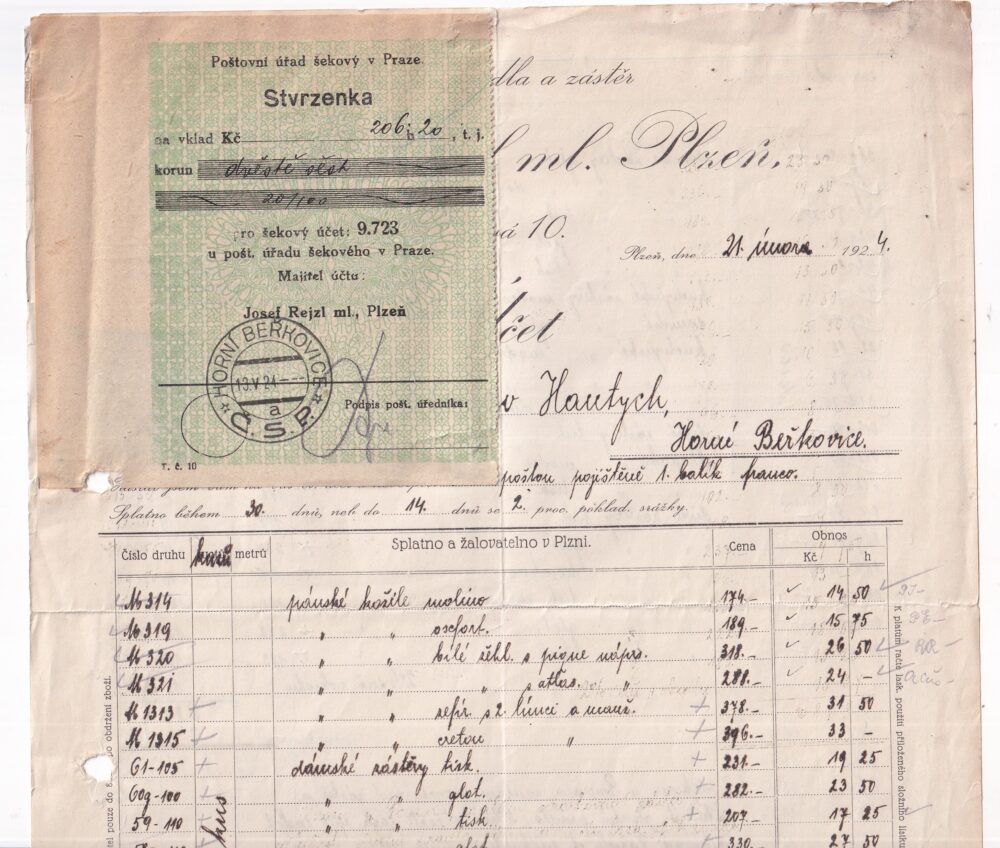 Poštovní úřad šekový v Praze.
Stvrzenka
na vklad Kč 206 h 20, t. j.
korun dvěstě šest
20/100
pro šekový účet: 9.723
u pošt. úřadu šekového v Praze.
Majitel účtu:
Josef Rejzl ml., Plzeň
HORNÍ BEŘKOVICE
13.V.24
a
Č.S.P.
Podpis pošt. úředníka:
T. č. 10
dla a zástěr
l ml. Plzeň,
vá 10.
Plzeň, dne 21. února 1924.
čet
v Hautych,
Horní Beřkovice.
poštou pojištěně 1. balík franco.
Splatno během 30. dnů, neb do 14. dnů se 2. proc. poklad. srážky.
Číslo druhu kusů metrů Splatno a žalovatelno v Plzni. Cena Obnos
Kč h
M 314 pánské košile molino 174.- 14 50
M 319 " " oxfort. 189.- 15 75
M 320 " " bílé žehl. s pique nápr. 318.- 26 50
M 321 " " " s atlas. " 288.- 24 -
M 1313 " " zefir. s 2. límci a manž. 378.- 31 50
M 1315 " " creton " 396.- 33 -
61-105 dámské zástěry tisk. 231.- 19 25
60g-100 " " glot. 282.- 23 50
59-110 " " tisk. 207.- 17 25
330.- 27 50
kus
obdržení zboží.
K platům račte lask. použíti přiloženého složního lístku